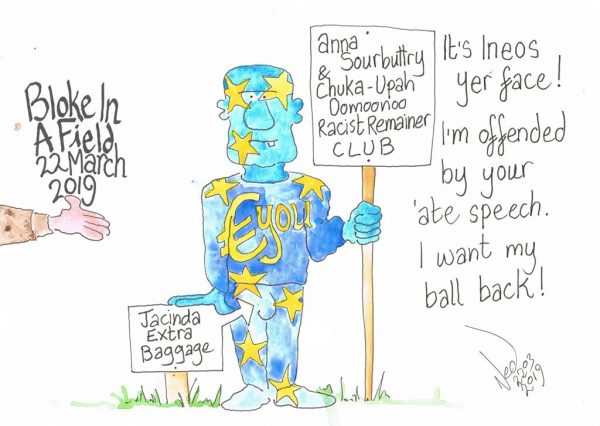 Bloke In
A Field
22 March
2019
anna
Sourbuttry
& Chuka-Upah
Oomoonoo
Racist Remainer
CLUB
It's Ineos
yer face!
I'm offended
by your
'ate speech.
I want my
ball back!
€you
Jacinda
Extra
Baggage
2019